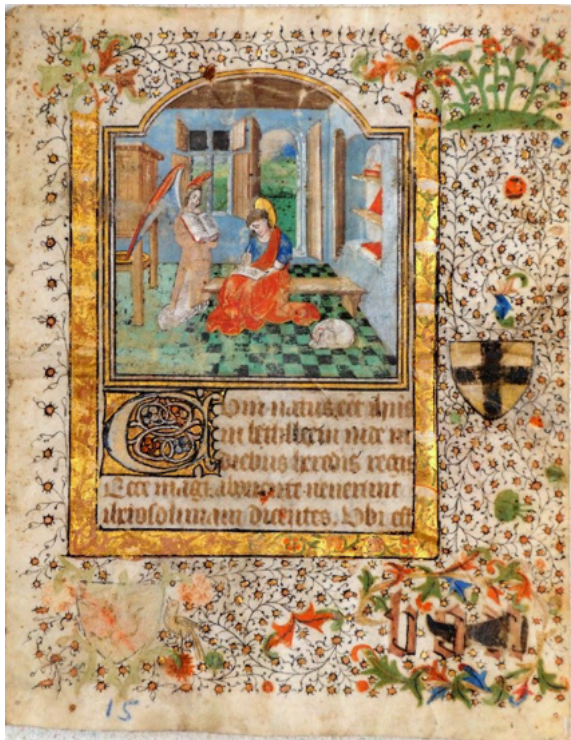 Cum natus eet ihus
in bethleem iude in
diebus herodis regis
Ecce magi ab oriente uenerunt
iherosolimam dicentes. Vbi est
15